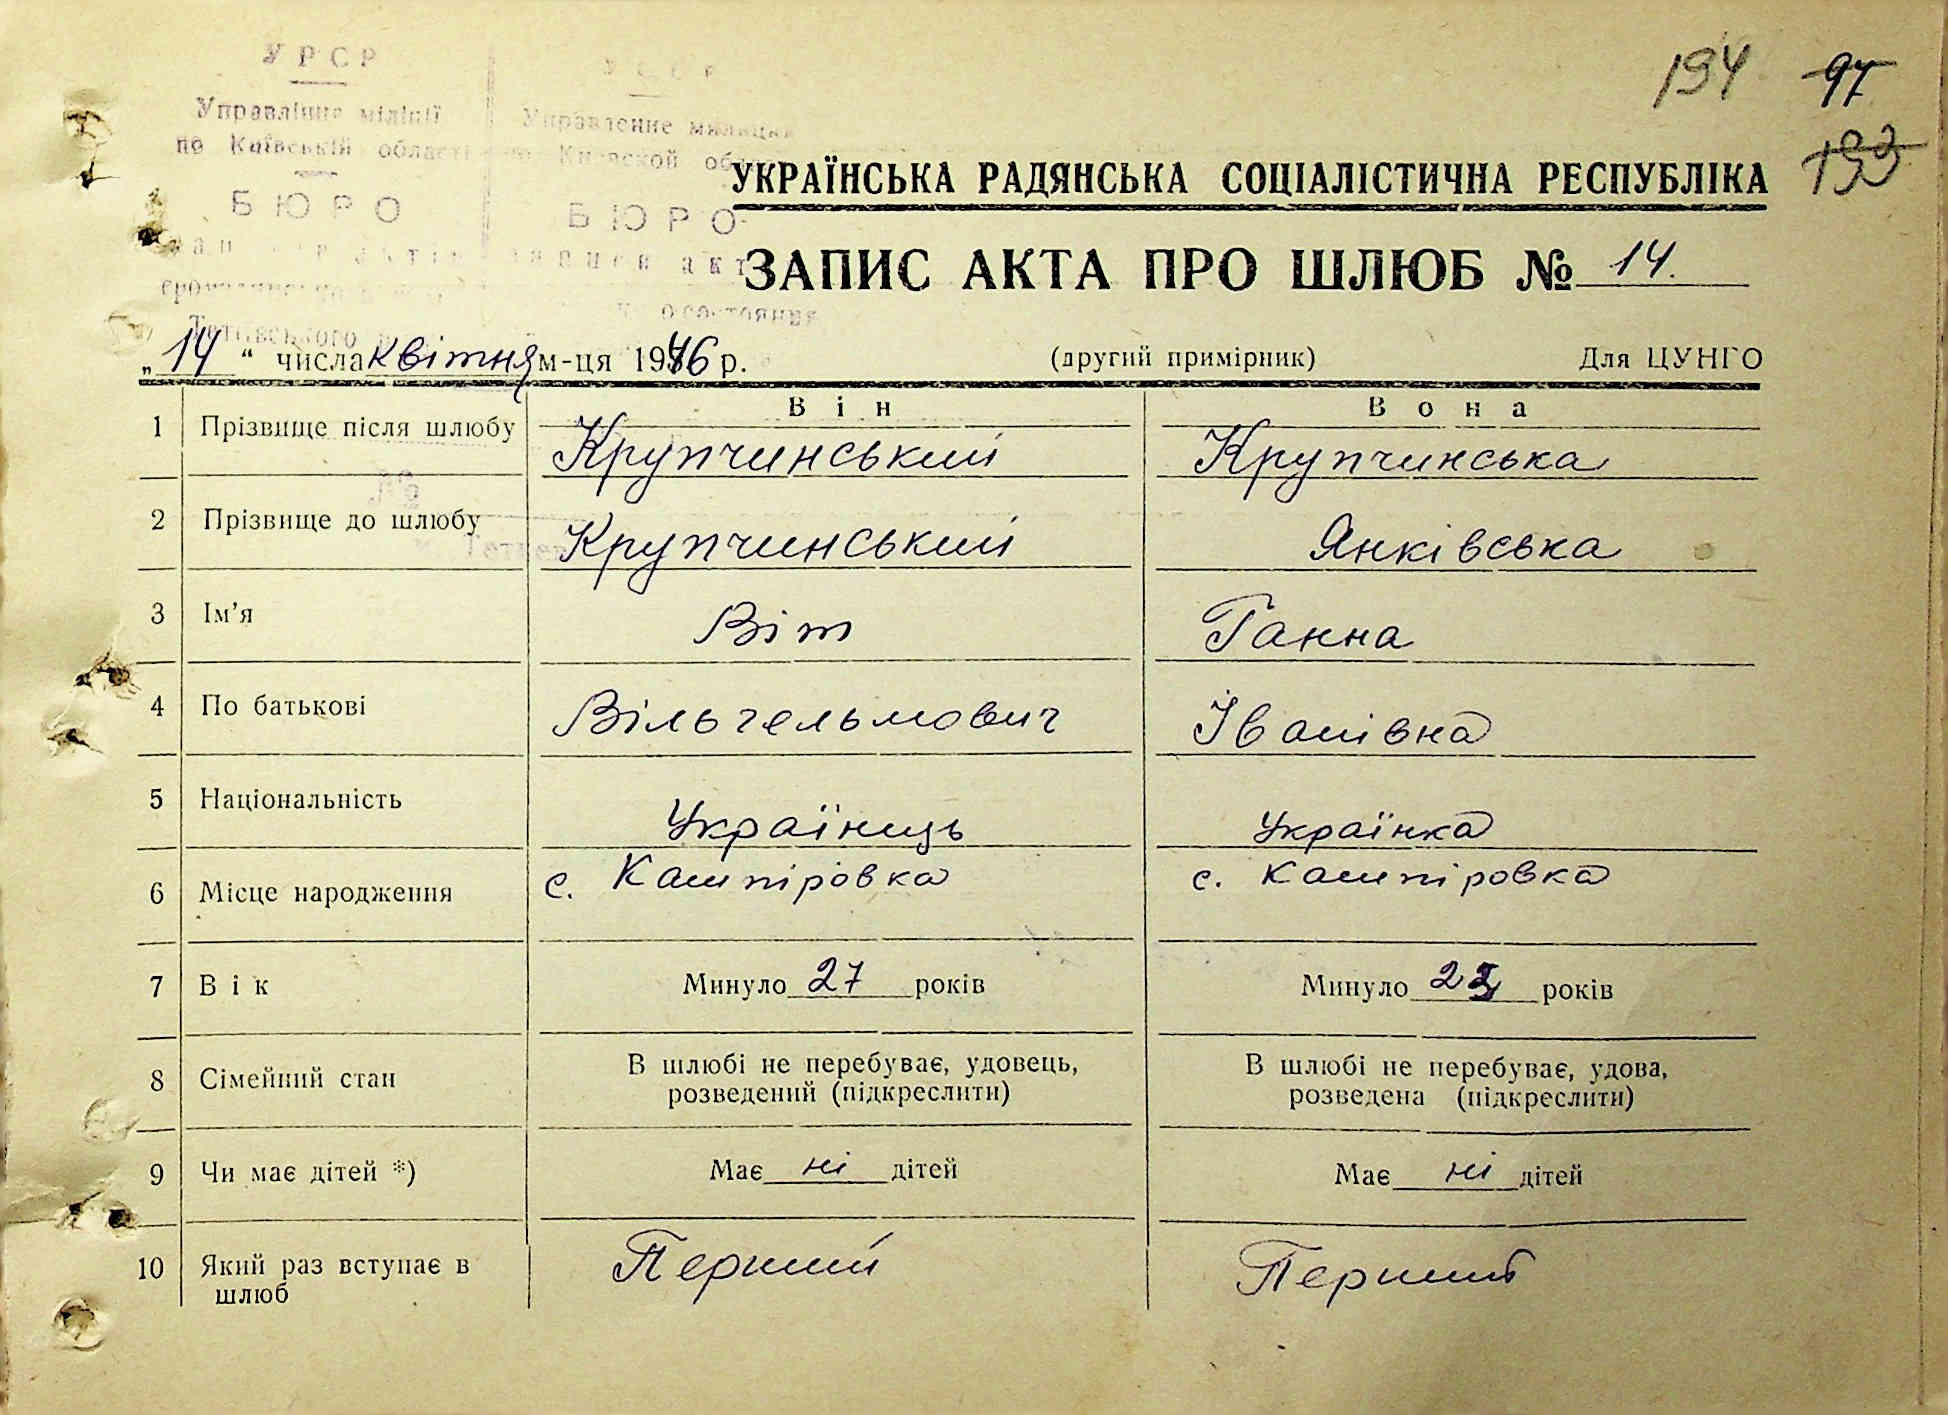 УРСР
Управління міліції
по Київській області
БЮРО
Управление милиции
Киевской
БЮРО
194 97
193
УКРАЇНСЬКА РАДЯНСЬКА СОЦІАЛІСТИЧНА РЕСПУБЛІКА
ЗАПИС АКТА ПРО ШЛЮБ № 14.
„14“ числа квітня м-ця 1946 р. (другий примірник) Для ЦУНГО
Він Вона
1 Прізвище після шлюбу Крупчинський Крупчинська
2 Прізвище до шлюбу Крупчинський Янківська
3 Ім'я Віт Ганна
4 По батькові Вільгельмович Іванівна
5 Національність Українець Українка
6 Місце народження с. Кашпіровка с. Кашпіровка
7 Вік Минуло 27 років Минуло років
8 Сімейний стан В шлюбі не перебуває, удовець, розведений (підкреслити) В шлюбі не перебуває, удова, розведена (підкреслити)
9 Чи має дітей *) Має ні дітей Має ні дітей
10 Який раз вступає в шлюб Перший Перший